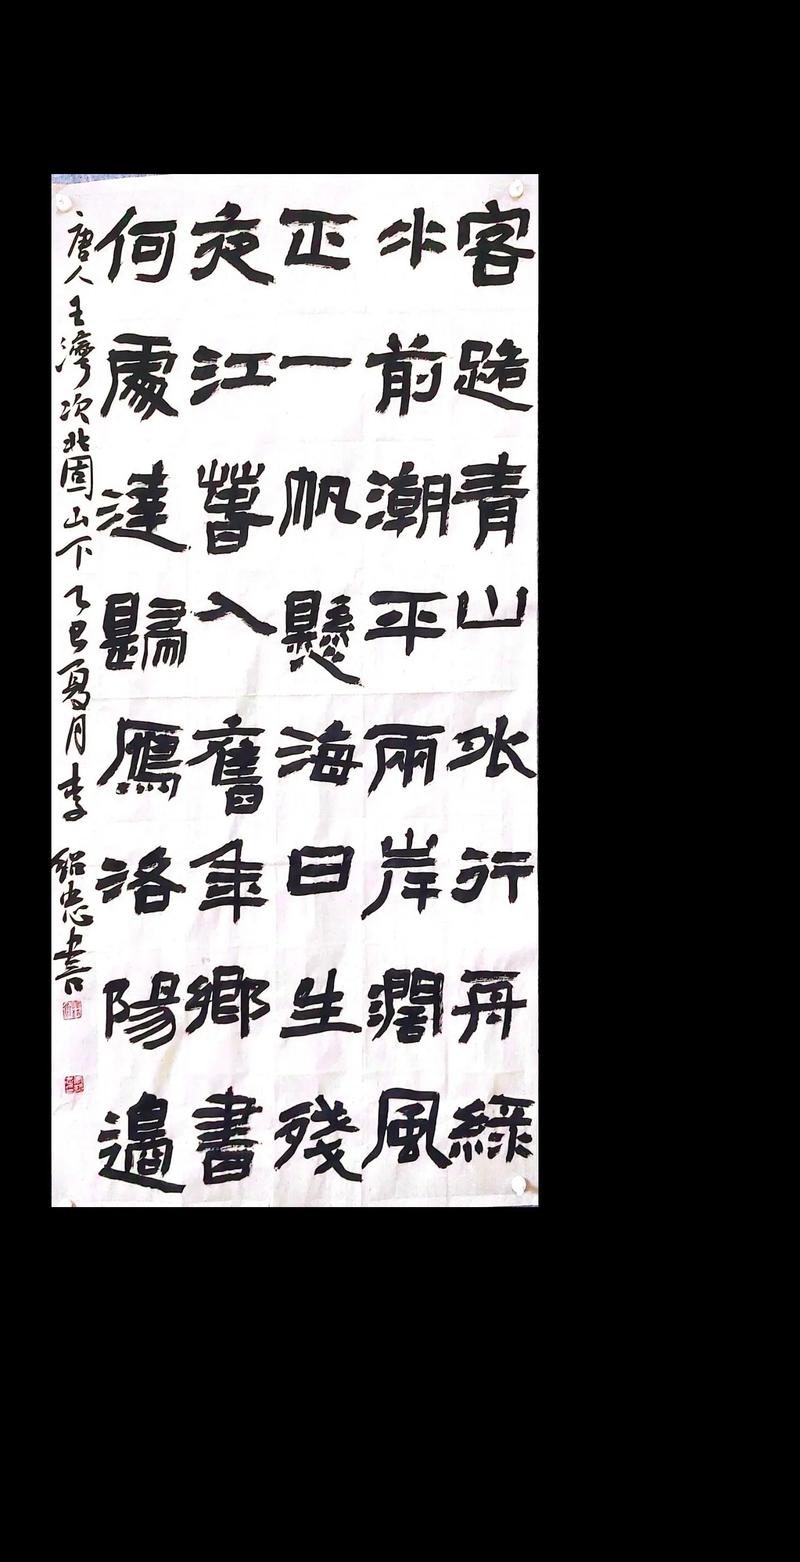 客路青山外行舟綠
水前潮平兩岸濶風
正一帆懸海日生殘
夜江春入舊年鄉書
何處達歸鴈洛陽邊
唐人王灣次北固山下乙巳夏月李紹忠書